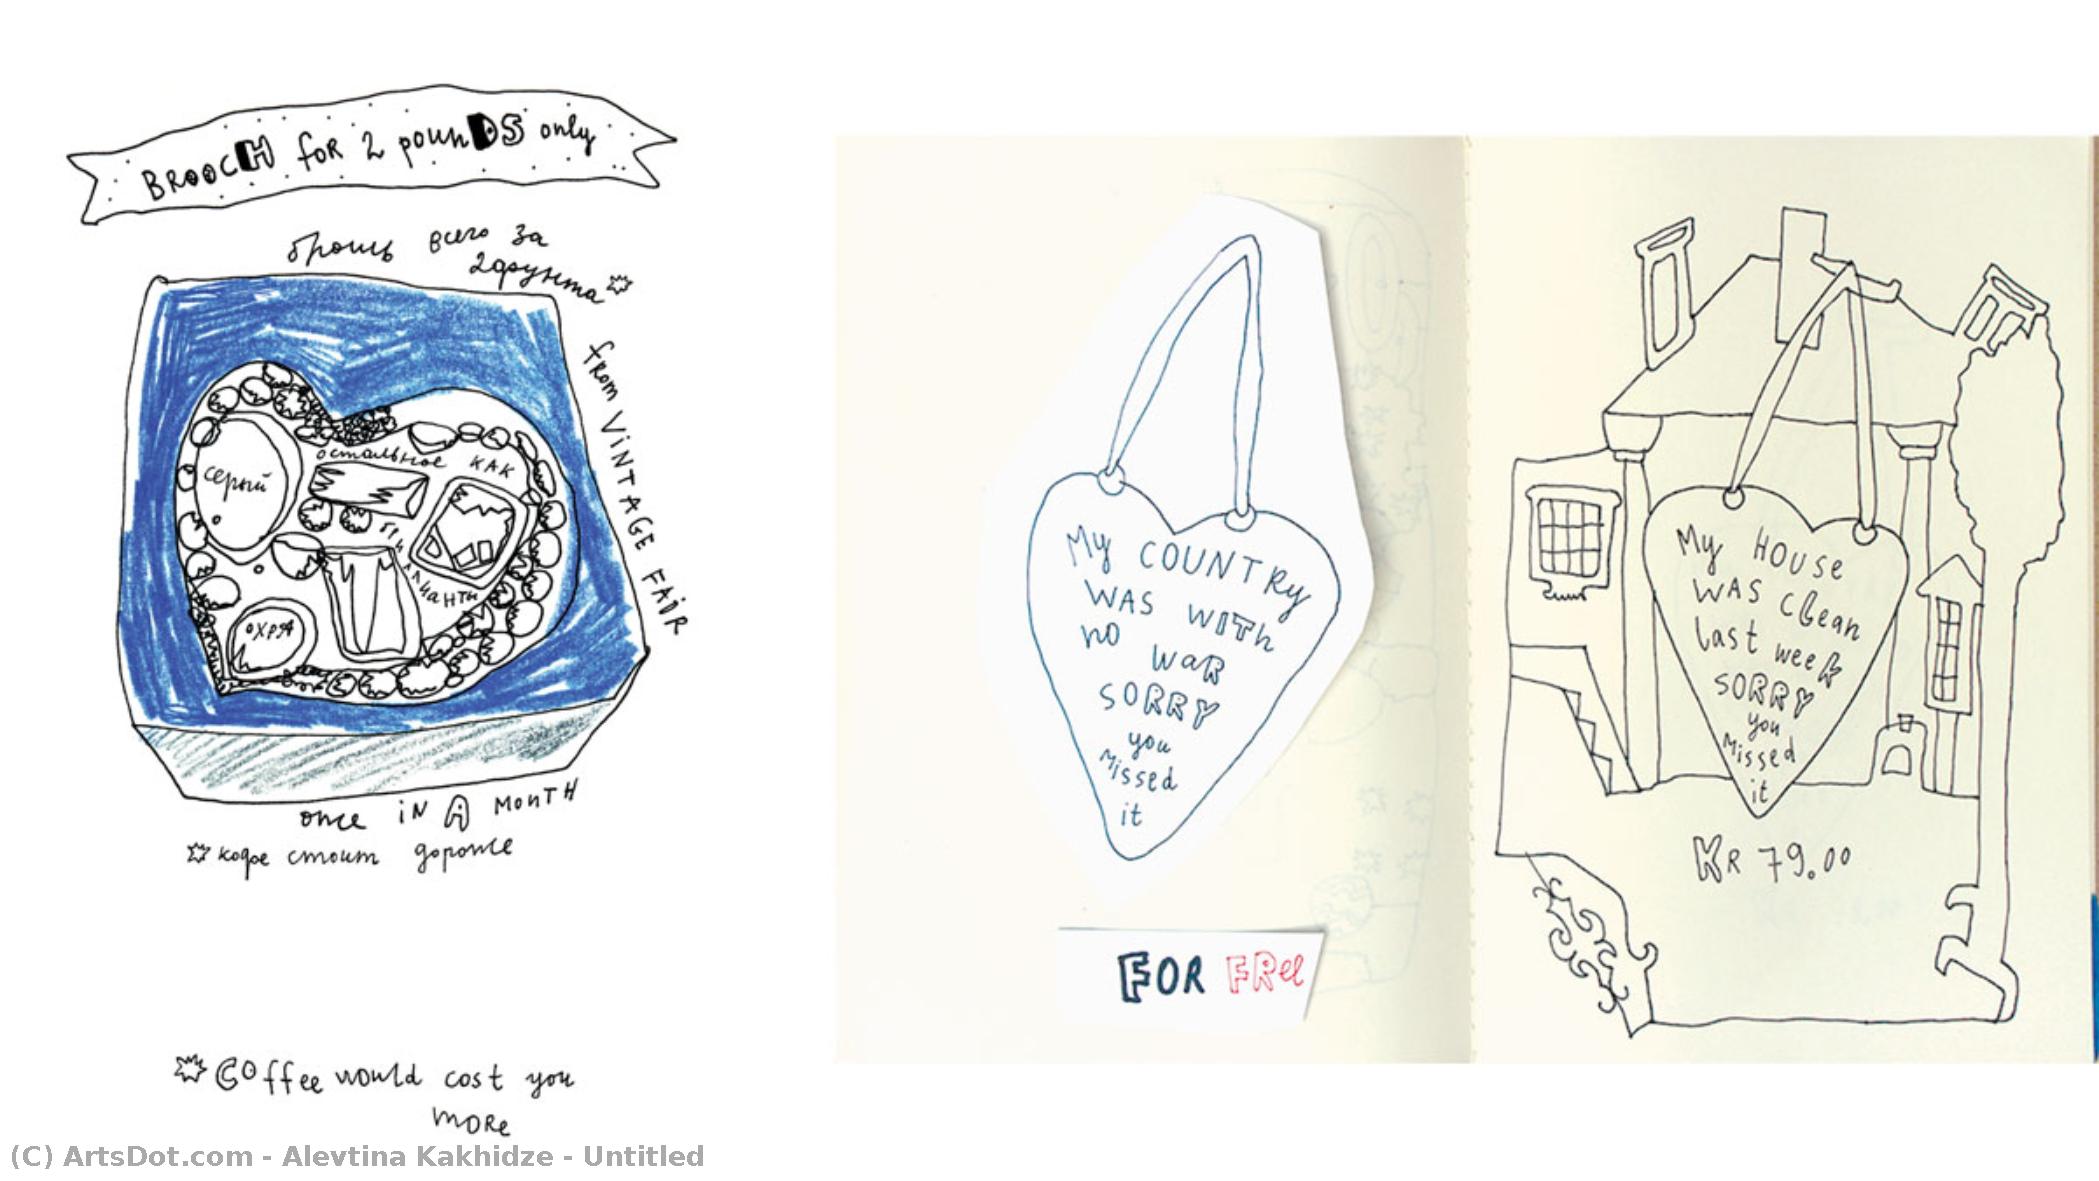 BROOCH for 2 pounDS only
брошь всего за
2 фунта*
from VINTAGE FAIR
серый
остальное как
бриллианты
охра
once in A MONTH
*кофе стоит дороже
*Coffee would cost you
more
My COUNTRy
WAS WITh
no WaR
SORRY
you
Missed
it
FOR FRee
My HOUSe
WAS Clean
last week
SORRY
you
Missed
it
KR 79.00
(C) ArtsDot.com - Alevtina Kakhidze - Untitled